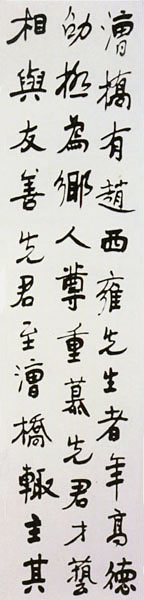 漕橋有趙西雍先生者年高德
劭極為鄉人尊重慕先君才藝
相與友善先君至漕橋輙主其